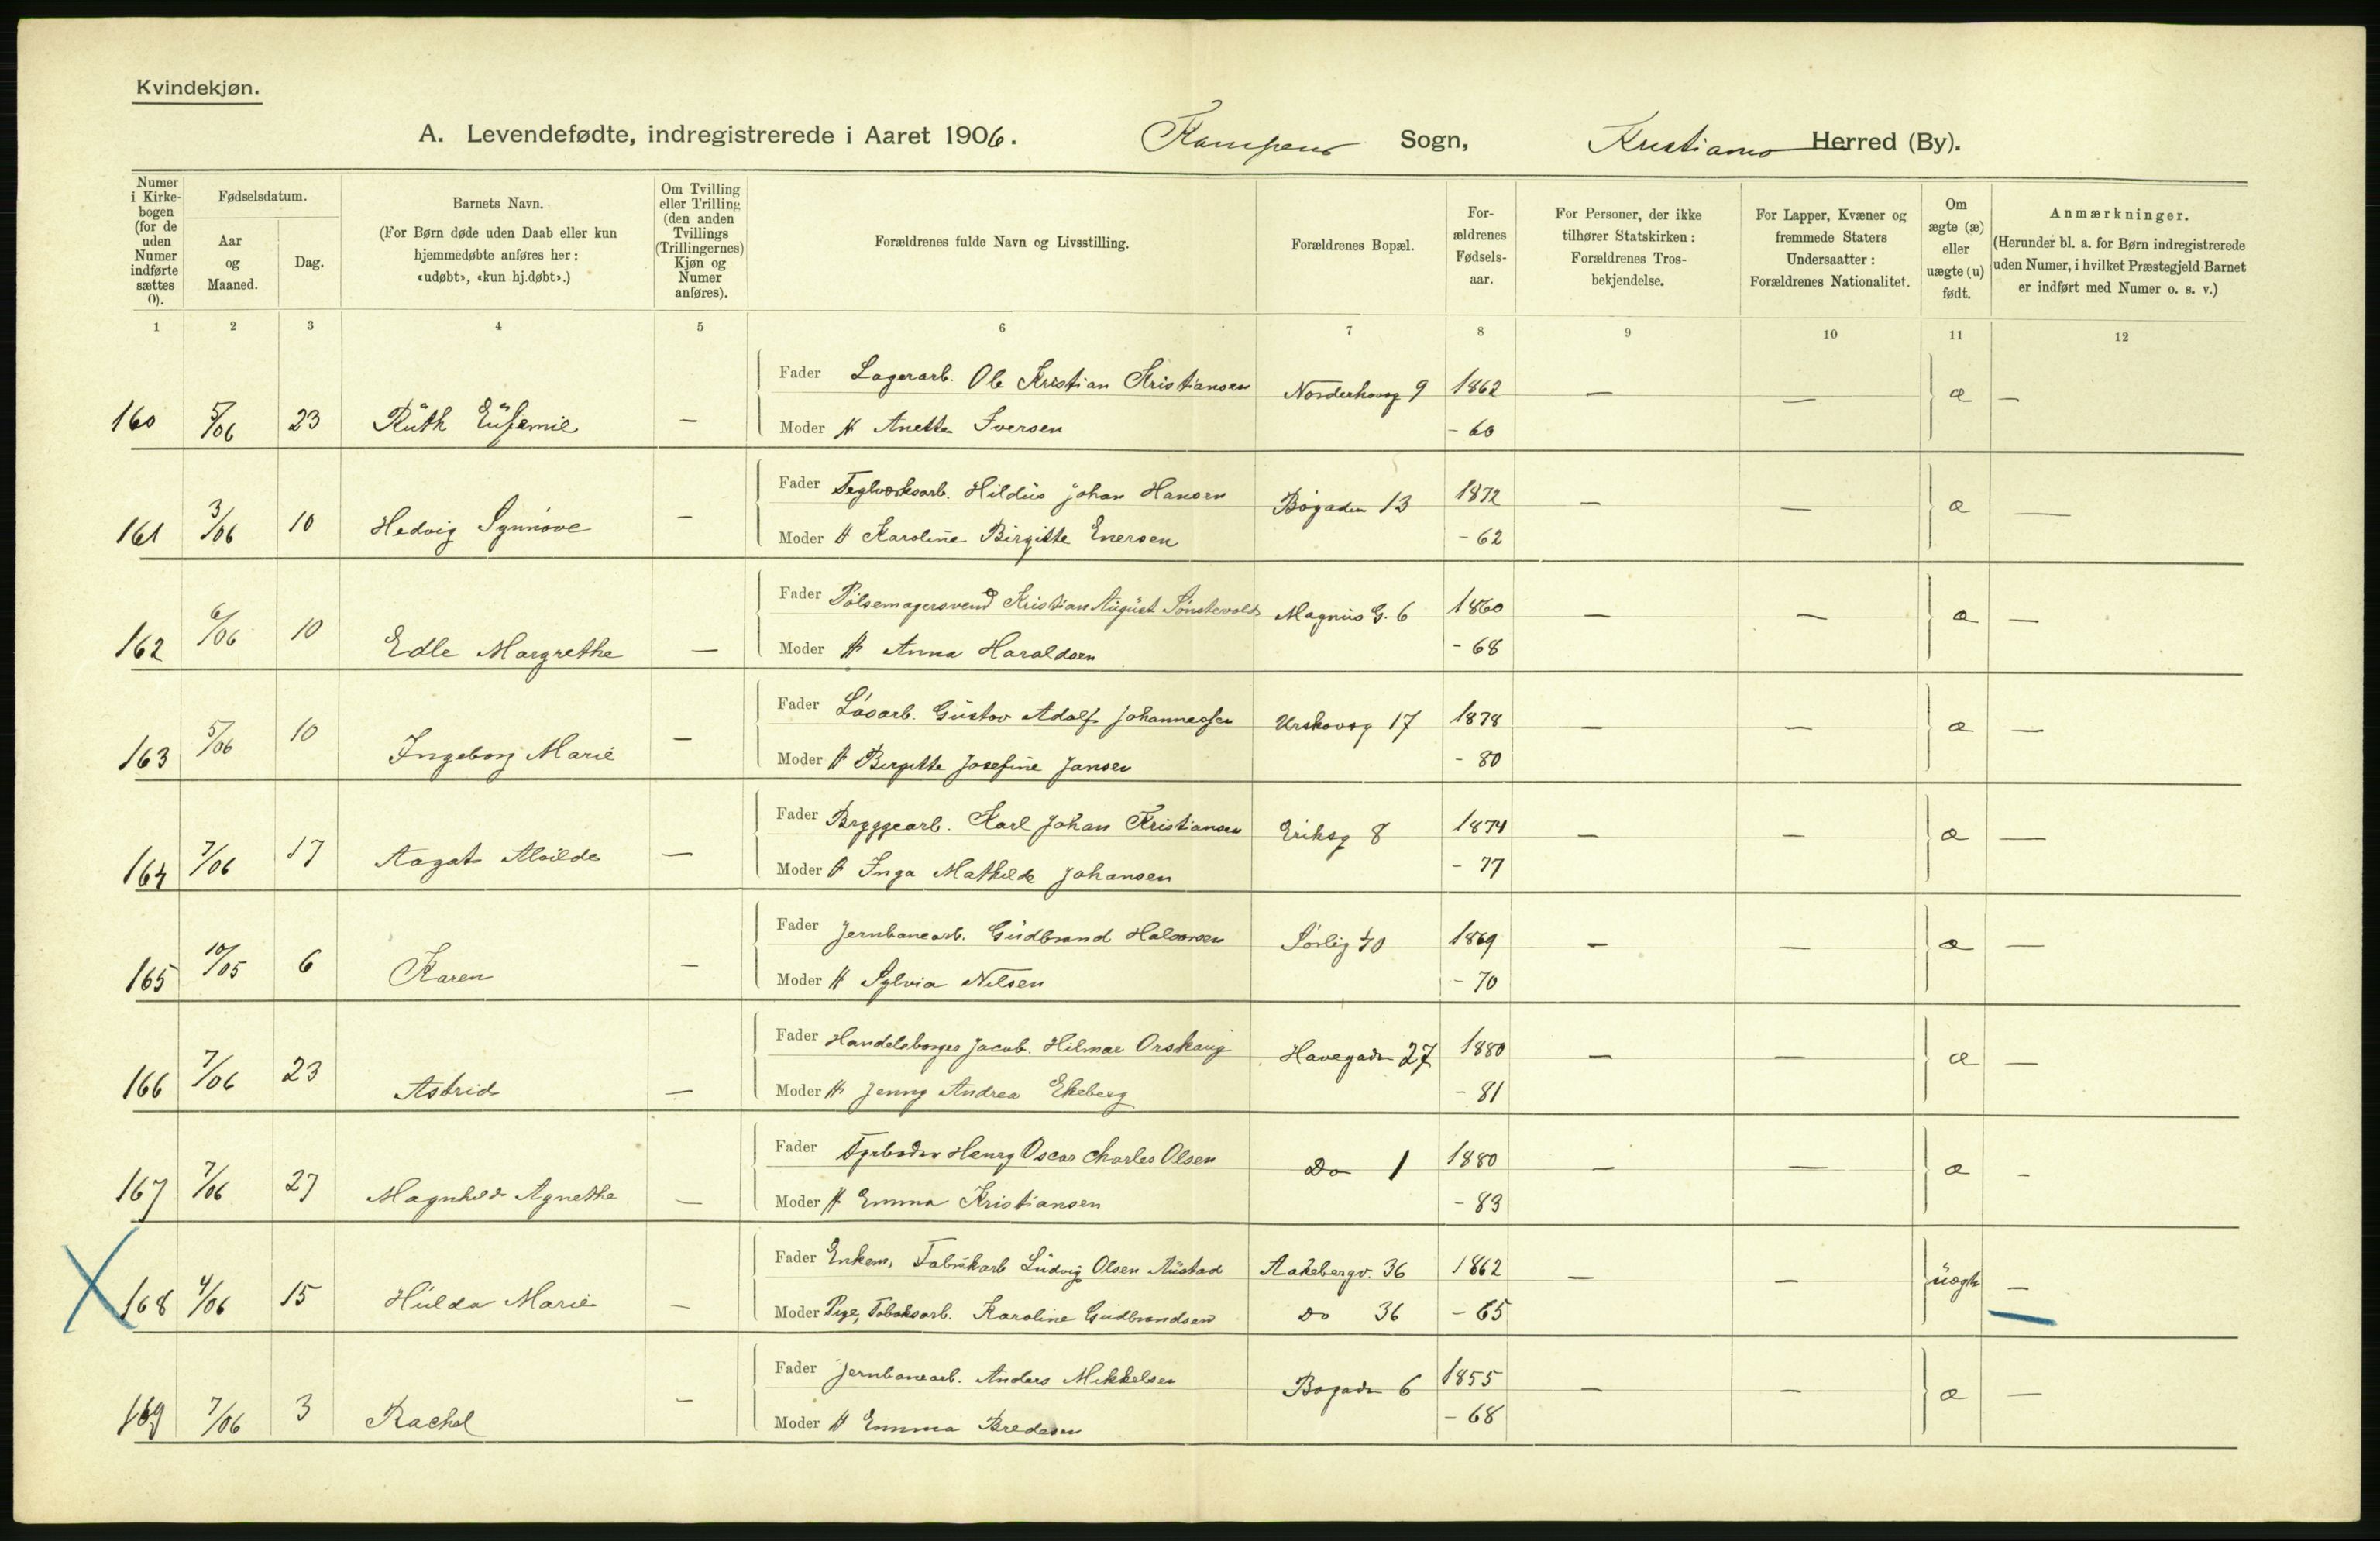 Kvindekjøn.
A. Levendefødte, indregistrerede i Aaret 1906. Kampens Sogn, Kristiania Herred (By).
Numer i Kirkebogen (for de uden Numer indførte sættes 0).
Fødselsdatum.
Aar og Maaned.
Dag.
Barnets Navn.
(For Børn døde uden Daab eller kun hjemmedøbte anføres her: «udøbt», «kun hj.døbt».)
Om Tvilling eller Trilling (den anden Tvillings (Trillingernes) Kjøn og Numer anføres).
Forældrenes fulde Navn og Livsstilling.
Forældrenes Bopæl.
Forældrenes Fødselsaar.
For Personer, der ikke tilhører Statskirken: Forældrenes Trosbekjendelse.
For Lapper, Kvæner og fremmede Staters Undersaatter: Forældrenes Nationalitet.
Om ægte (æ) eller uægte (u) født.
Anmærkninger.
(Herunder bl. a. for Børn indregistrerede uden Numer, i hvilket Præstegjeld Barnet er indført med Numer o. s. v.)
1 2 3 4 5 6 7 8 9 10 11 12
Fader Lagerarb. Ole Kristian Kristiansen Norderhovsg 9 1862 — — æ —
160 5/06 23 Ruth Eufemie —
Moder H Anette Iversen - 60
Fader Teglverksarb. Hildus Johan Hansen Bøgaden 13 1872 — — æ —
161 3/06 10 Hedvig Synnøve —
Moder H Karoline Birgitte Enersen - 62
Fader Pølsemagersvend Kristian August Sønstevold Magnus G. 6 1860 — — æ —
162 6/06 10 Edle Margrethe —
Moder H Anna Haraldsen - 68
Fader Løsarb. Gustav Adolf Johannessen Urskovsg 17 1878 — — æ —
163 5/06 10 Ingeborg Marie —
Moder H Birgitte Josefine Jansen - 80
Fader Bryggearb. Karl Johan Kristiansen Eriksg 8 1874 — — æ —
164 7/06 17 Aagot Alvilde —
Moder H Inga Mathilde Johansen - 77
Fader Jernbanearb. Gudbrand Halvorsen Sørlig 40 1869 — — æ —
165 10/05 6 Karen —
Moder H Sylvia Nilsen - 70
Fader Handelsborger Jacob Hilmar Orskaug Havegaden 27 1880 — — æ —
166 7/06 23 Astrid —
Moder H Jenny Andrea Ekeberg - 81
Fader Fyrbøder Henry Oscar Charles Olsen Do 1 1880 — — æ -
167 7/06 27 Magnhild Agnethe —
Moder H Emma Kristiansen - 83
Fader Enkem, Fabrikarb Ludvig Olsen Austad Aakebergv. 36 1862 — — uægte —
168 4/06 15 Hulda Marie —
Moder Pige, Tobaksarb. Karoline Gudbrandsen Do 36 - 65
Fader Jernbanearb. Anders Mikkelsen Bøgaden 6 1855 — — æ —
169 7/06 3 Rachel —
Moder H Emma Bredesen - 68